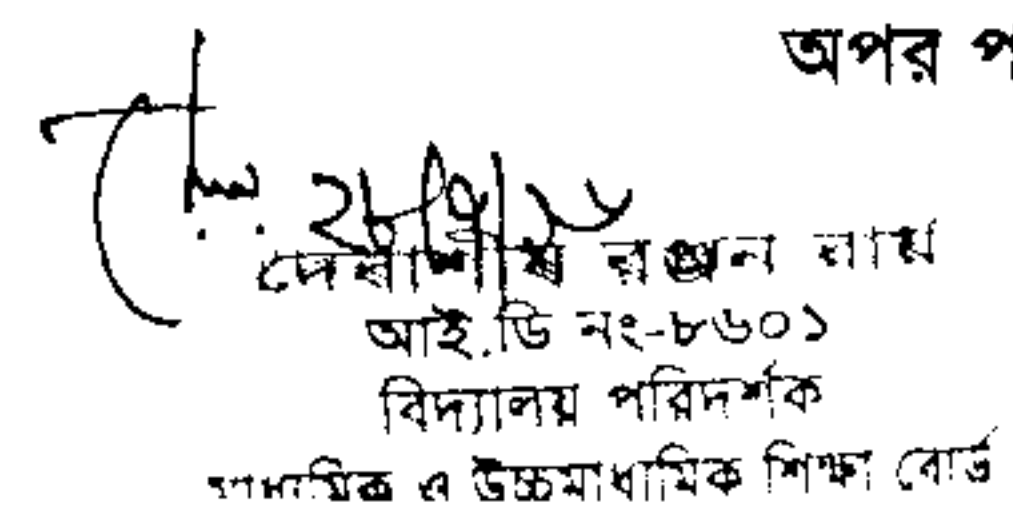 অপর প
২৮/৭/১৬
দেবাশীষ রঞ্জন রায়
আই.ডি নং-৮৬০১
বিদ্যালয় পরিদর্শক
মাধ্যমিক ও উচ্চমাধ্যমিক শিক্ষা বোর্ড